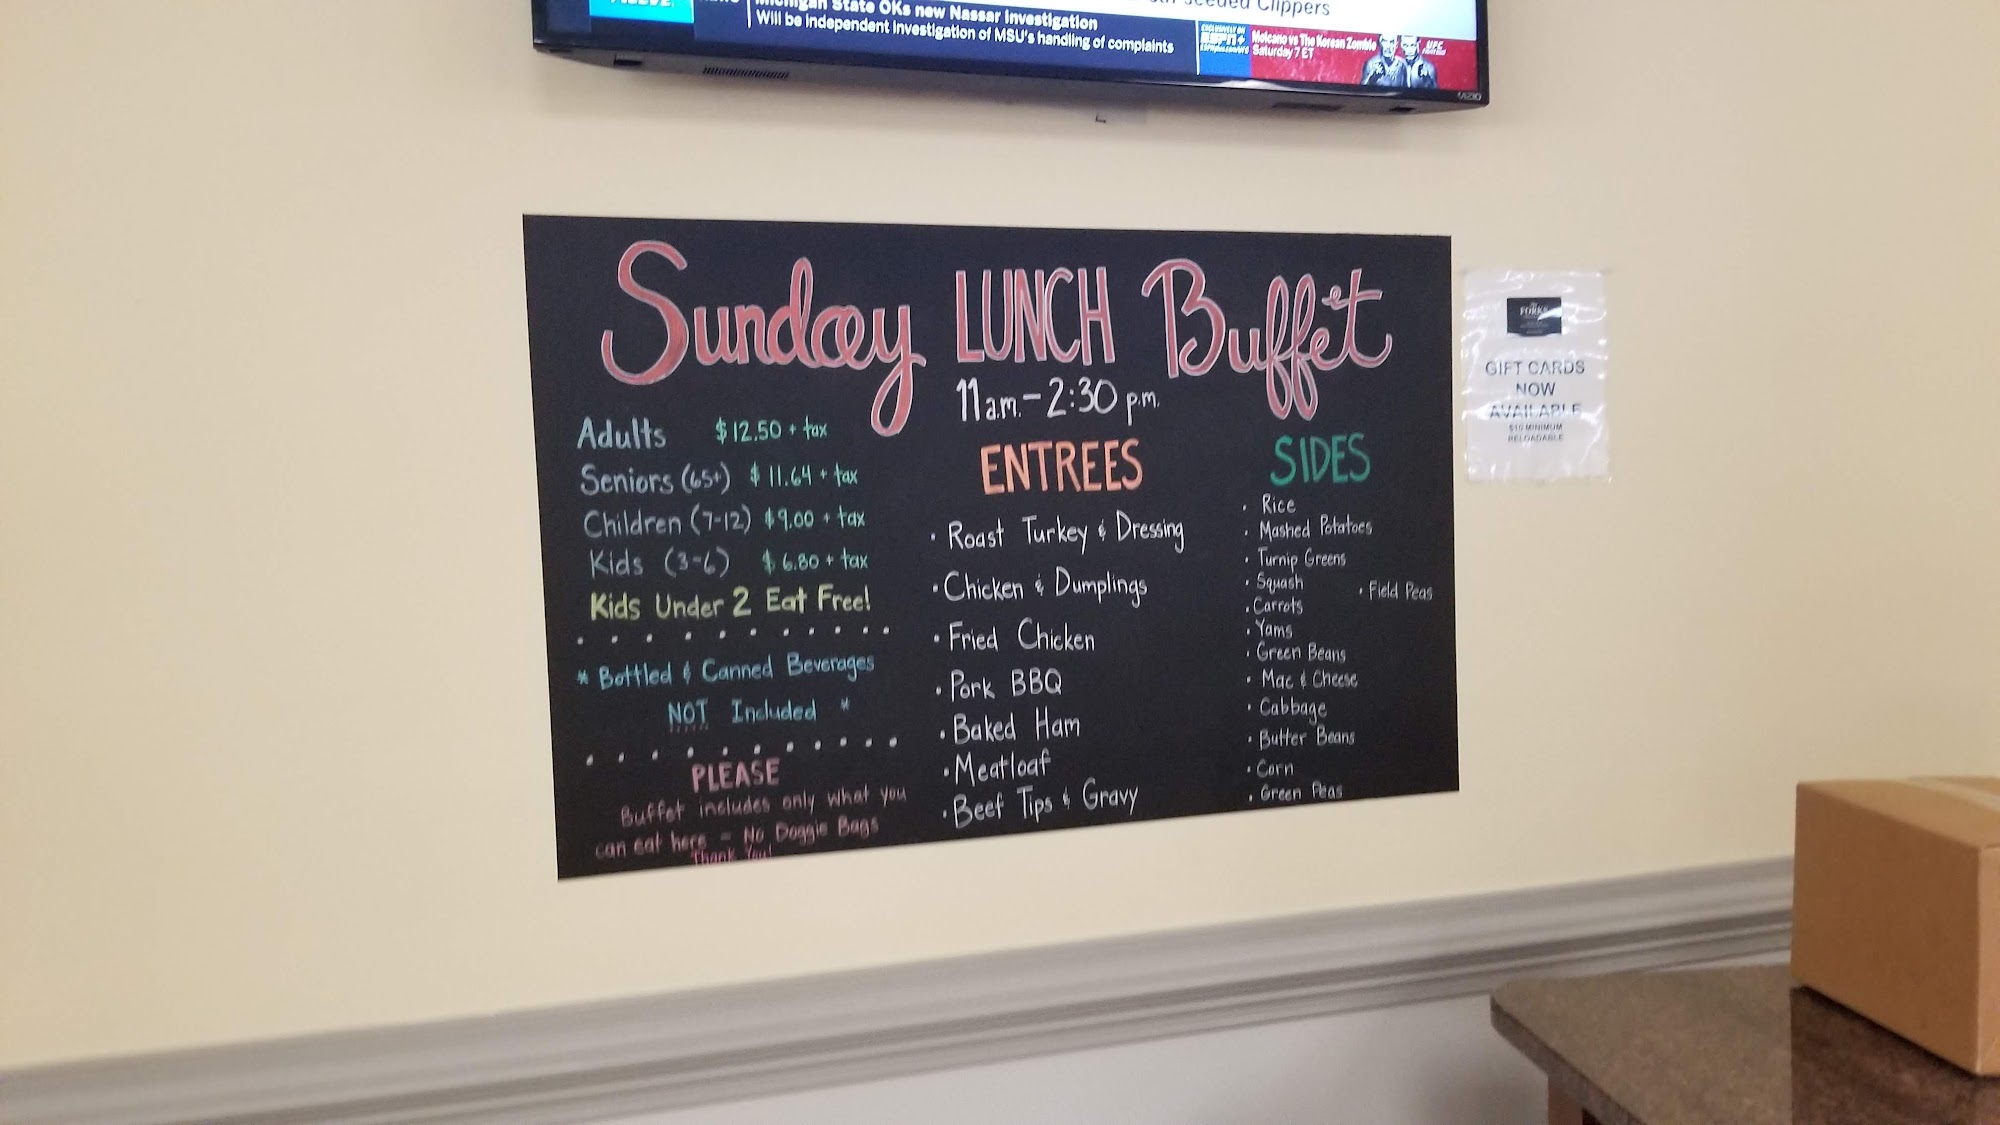 seeded Clippers
Michigan State OKs new Nassar Investigation
Will be independent investigation of MSU's handling of complaints
EXCLUSIVELY ON
ESPN+
Moicano vs The Korean Zombie
Saturday 7 ET
UFC
VIZIO
Sunday LUNCH Buffet
11 a.m. - 2:30 p.m.
Adults $12.50 + tax
Seniors (65+) $11.64 + tax
Children (7-12) $9.00 + tax
Kids (3-6) $6.80 + tax
Kids Under 2 Eat Free!
* Bottled & Canned Beverages
NOT Included *
PLEASE
Buffet includes only what you
can eat here - No Doggie Bags
Thank You!
ENTREES
• Roast Turkey & Dressing
• Chicken & Dumplings
• Fried Chicken
• Pork BBQ
• Baked Ham
• Meatloaf
• Beef Tips & Gravy
SIDES
• Rice
• Mashed Potatoes
• Turnip Greens
• Squash
• Field Peas
• Carrots
• Yams
• Green Beans
• Mac & Cheese
• Cabbage
• Butter Beans
• Corn
• Green Peas
FORKS
GIFT CARDS
NOW
AVAILABLE
$10 MINIMUM
RELOADABLE